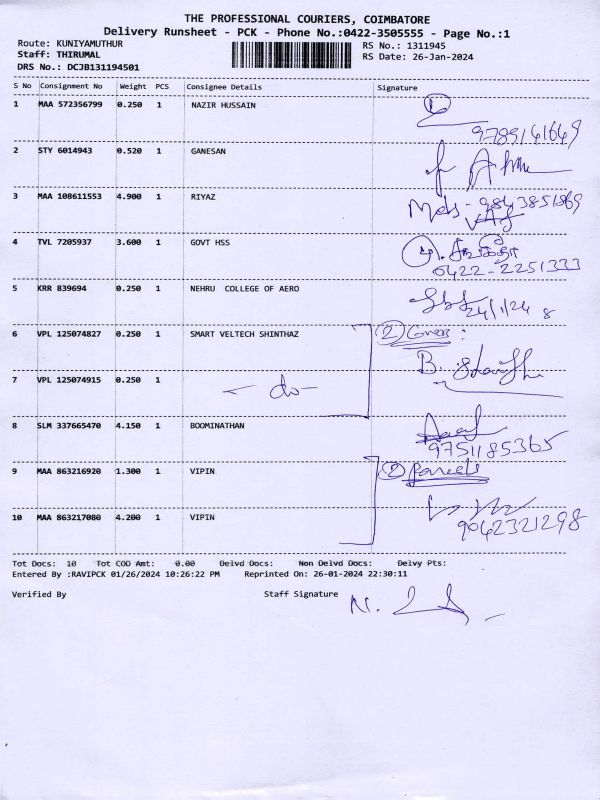 THE PROFESSIONAL COURIERS, COIMBATORE
Delivery Runsheet - PCK - Phone No.:0422-3505555 - Page No.:1
Route: KUNIYAMUTHUR RS No.: 1311945
Staff: THIRUMAL RS Date: 26-Jan-2024
DRS No.: DCJB131194501
S No Consignment No Weight PCS Consignee Details Signature
1 MAA 572356799 0.250 1 NAZIR HUSSAIN
9789141649
2 STY 6014943 0.520 1 GANESAN
3 MAA 108611553 4.900 1 RIYAZ
9843851869
4 TVL 7205937 3.600 1 GOVT HSS
0422-2251333
5 KRR 839694 0.250 1 NEHRU COLLEGE OF AERO
24/1/24
6 VPL 125074827 0.250 1 SMART VELTECH SHINTHAZ
2 Cover :
7 VPL 125074915 0.250 1 - do -
B.
8 SLM 337665470 4.150 1 BOOMINATHAN
9751185365
9 MAA 863216920 1.300 1 VIPIN
2 Parcels
10 MAA 863217080 4.200 1 VIPIN
9042321298
Tot Docs: 10 Tot COD Amt: 0.00 Delvd Docs: Non Delvd Docs: Delvy Pts:
Entered By :RAVIPCK 01/26/2024 10:26:22 PM Reprinted On: 26-01-2024 22:30:11
Verified By Staff Signature N.